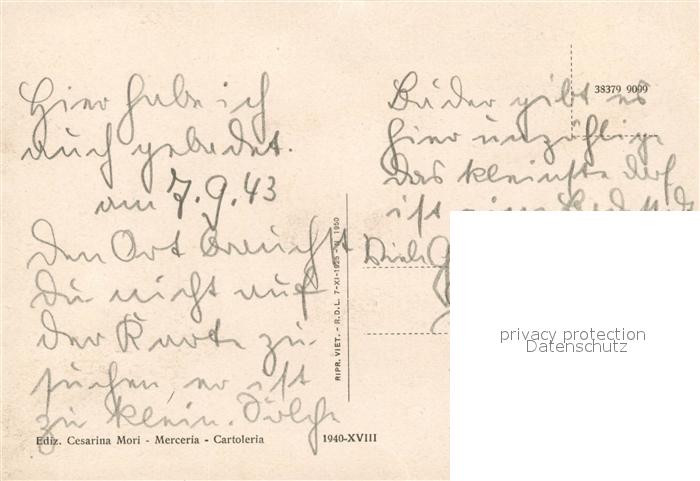 Hier habe ich
auch gebadet.
am 7.9.43
Den Ort brauchst
Du nicht auf
der Karte zu
suchen, er ist
zu klein. Solche
Ediz. Cesarina Mori - Merceria - Cartoleria
1940-XVIII
RIPR. VIET. - R.D.L. 7-XI-1925 - N. 1950
38379 9099
Bäder gibt es
hier unzählige
Das kleinste Dorf
ist eine
Viele
privacy protection
Datenschutz